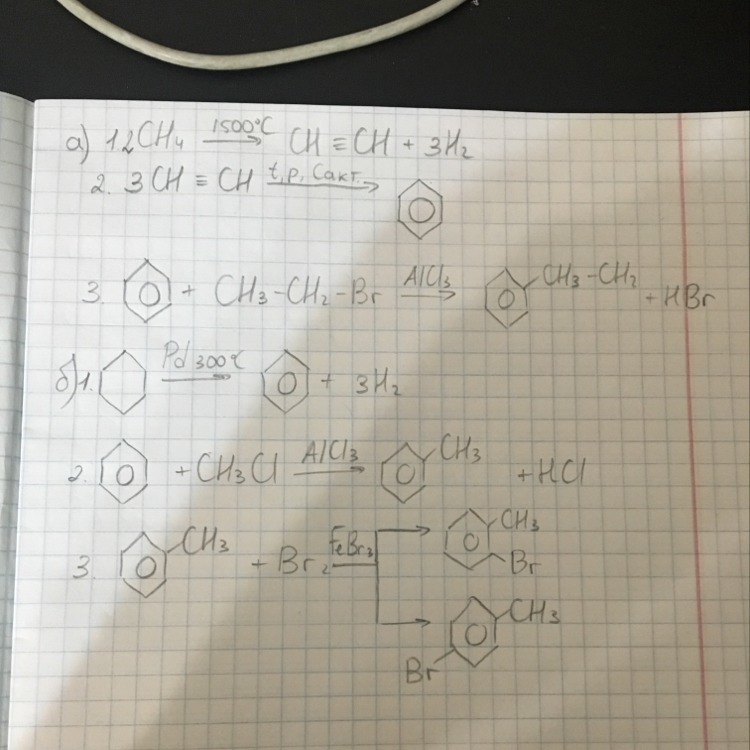 а) 1 2CH₄ 1500°C → CH ≡ CH + 3H₂
2. 3 CH ≡ CH t, p, Cакт. →
3. + CH₃-CH₂-Br AlCl₃ → CH₃-CH₂ + HBr
б) 1. Pd 300°C → + 3H₂
2. + CH₃Cl AlCl₃ → CH₃ + HCl
3. CH₃ + Br₂ FeBr₃ → CH₃ Br
→ CH₃ Br